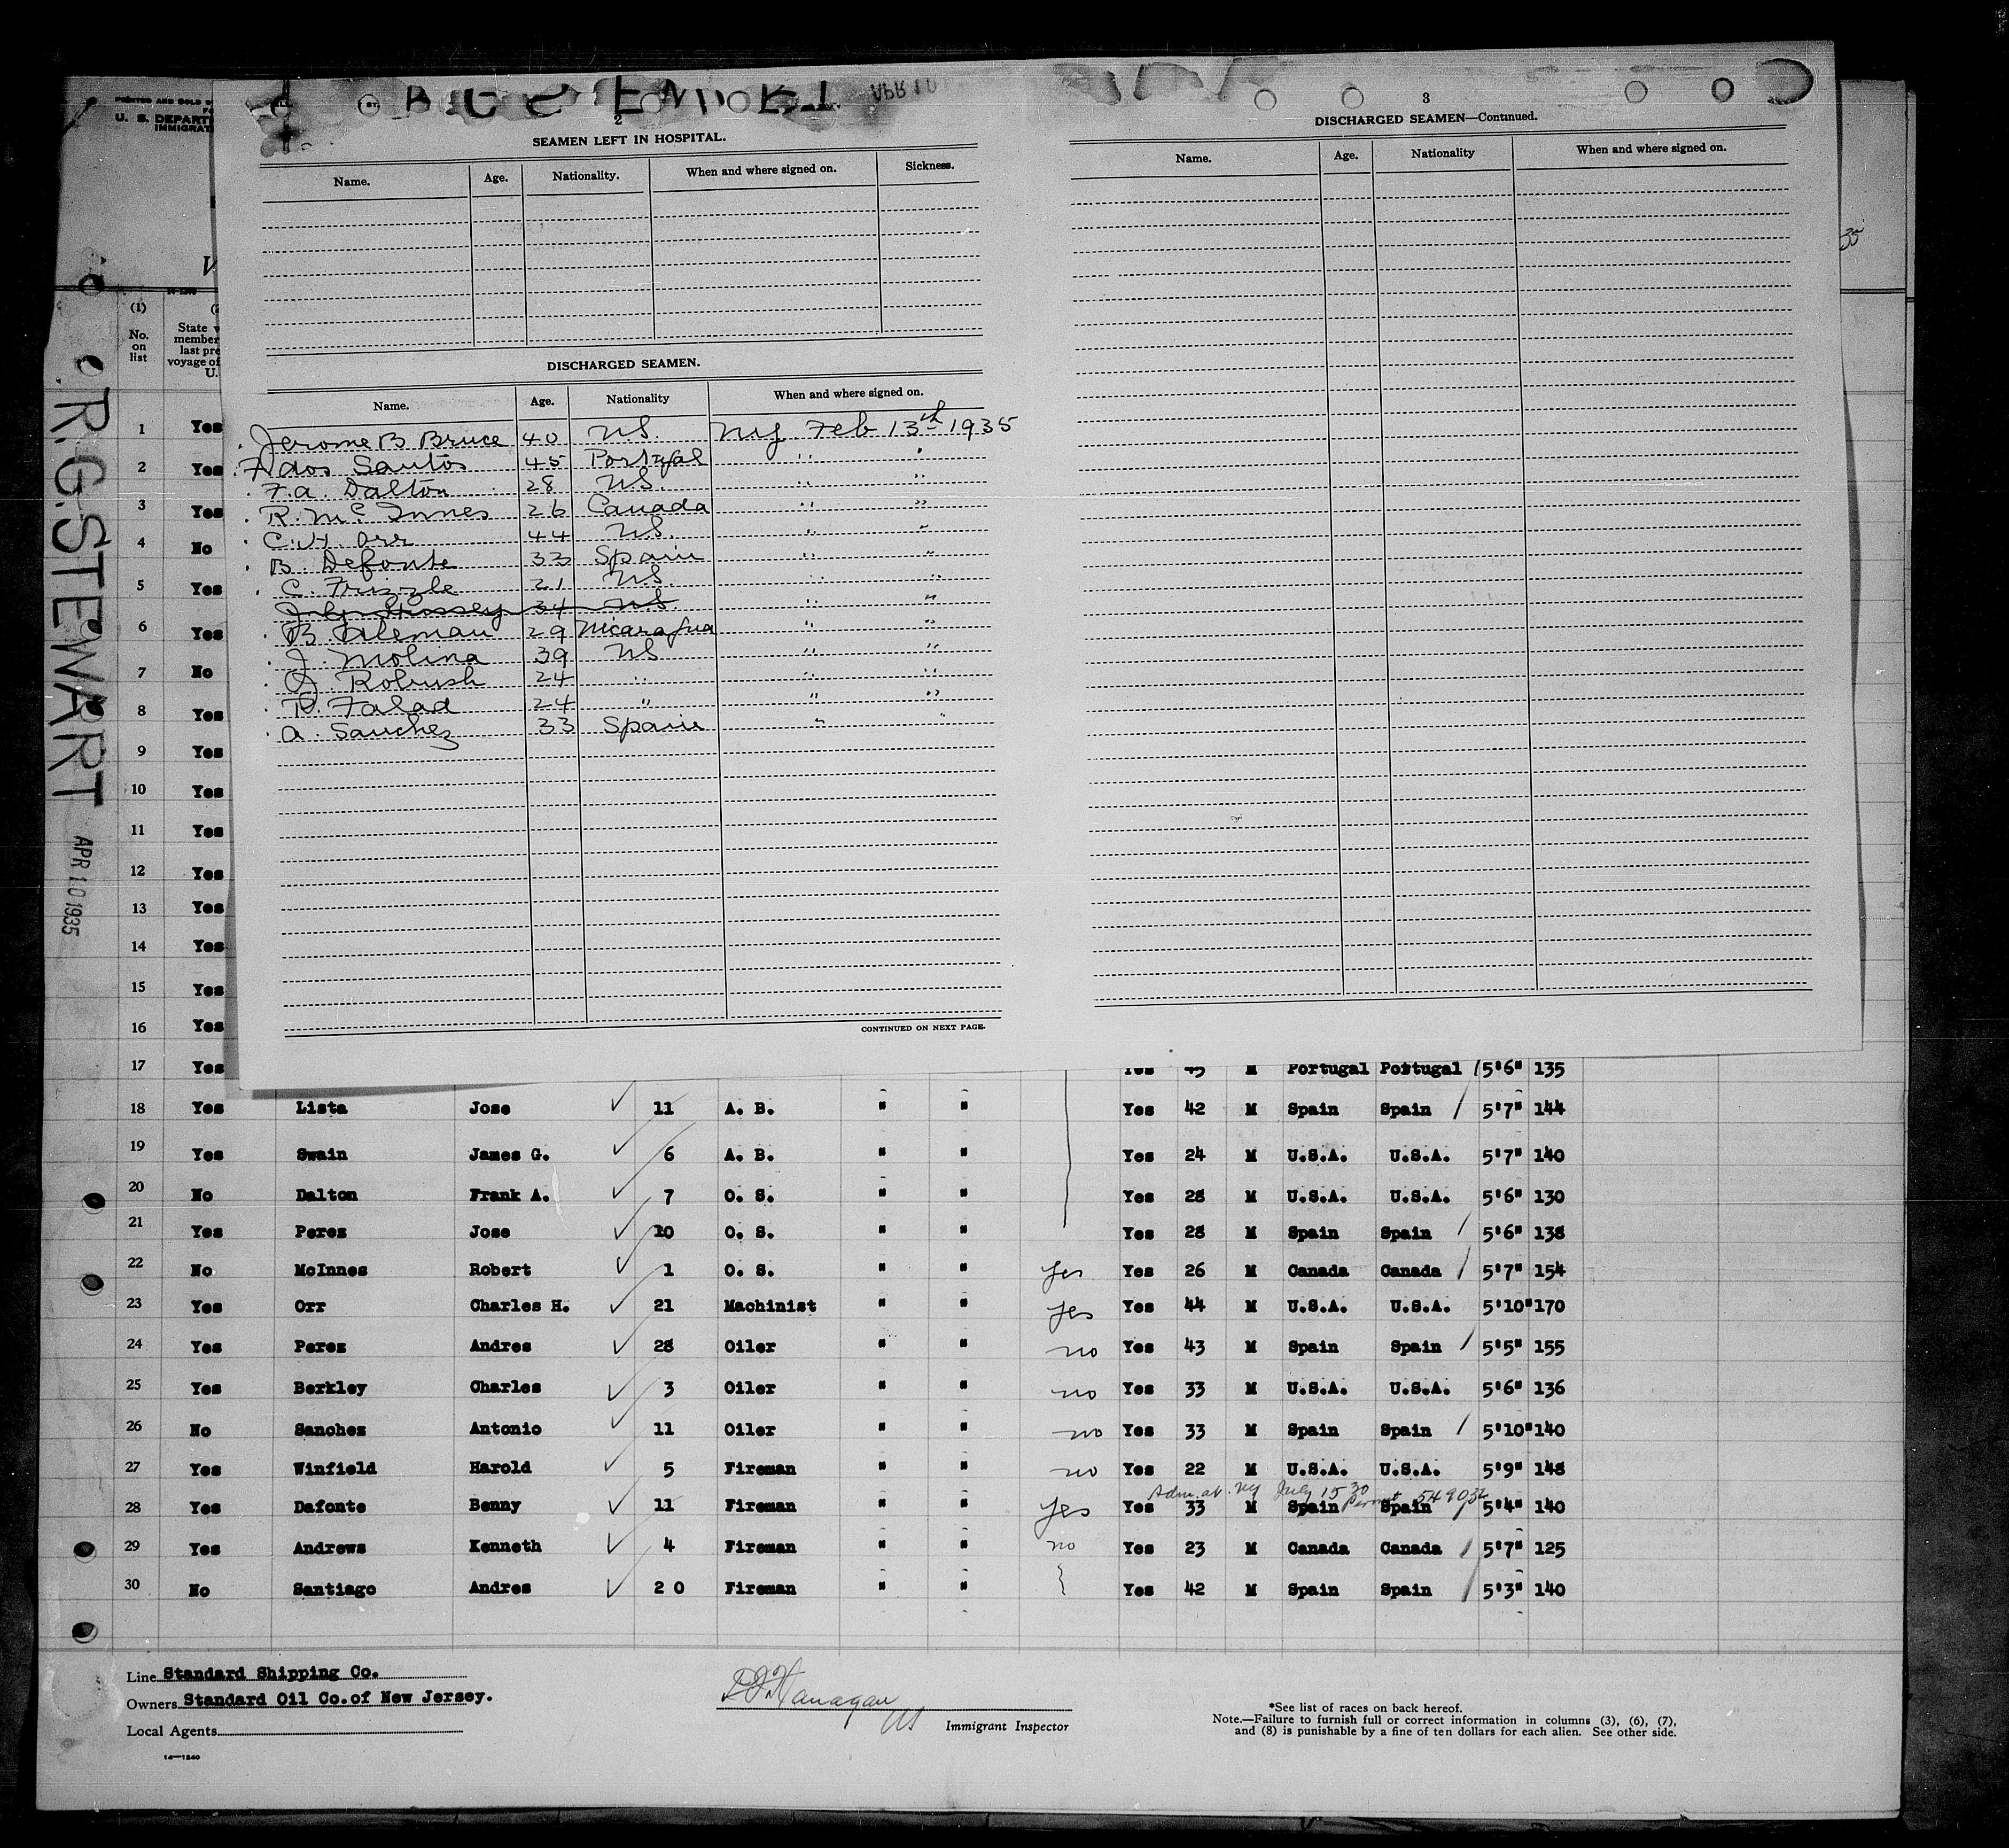 PRINTED AND SOLD
U. S. DEPART
IMMIGRAT
APR 10
2
SEAMEN LEFT IN HOSPITAL.
Name. Age. Nationality. When and where signed on. Sickness.
DISCHARGED SEAMEN.
Name. Age. Nationality When and where signed on.
Jerome B Bruce 40 U.S. N.Y. Feb 13th 1935
A dos Santos 45 Portugal " "
F. A. Dalton 28 U.S. " "
R. Mc Innes 26 Canada " "
C. H. Orr 44 U.S. " "
B. Defonte 33 Spain " "
C. Frizzle 21 U.S. " "
34 U.S. " "
B. Aleman 29 Nicaragua " "
J. Molina 39 U.S. " "
J. Robush 24 " " "
P. Falad 24 " " "
A. Sanchez 33 Spain " "
CONTINUED ON NEXT PAGE.
3
DISCHARGED SEAMEN—Continued.
Name. Age. Nationality When and where signed on.
35
R.G. STEWART
APR 10 1935
(1)
No.
on
list
State
member
last pre
voyage of
U.
1 Yes
2 Yes
3 Yes
4 No
5 Yes
6 Yes
7 No
8 Yes
9 Yes
10 Yes
11 Yes
12 Yes
13 Yes
14 Yes
15 Yes
16 Yes
17 Yes Yes 45 M Portugal Portugal 5'6" 135
18 Yes Lista Jose 11 A. B. " " Yes 42 M Spain Spain 5'7" 144
19 Yes Swain James G. 6 A. B. " " Yes 24 M U.S.A. U.S.A. 5'7" 140
20 No Dalton Frank A. 7 O. S. " " Yes 28 M U.S.A. U.S.A. 5'6" 130
21 Yes Perez Jose 10 O. S. " " Yes 28 M Spain Spain 5'6" 138
22 No McInnes Robert 1 O. S. " " yes Yes 26 M Canada Canada 5'7" 154
23 Yes Orr Charles H. 21 Machinist " " yes Yes 44 M U.S.A. U.S.A. 5'10" 170
24 Yes Perez Andres 28 Oiler " " no Yes 43 M Spain Spain 5'5" 155
25 Yes Berkley Charles 3 Oiler " " no Yes 33 M U.S.A. U.S.A. 5'6" 136
26 No Sanchez Antonio 11 Oiler " " no Yes 33 M Spain Spain 5'10" 140
27 Yes Winfield Harold 5 Fireman " " no Yes 22 M U.S.A. U.S.A. 5'9" 148
Adm. at. NY July 15 30 Permit 549032
28 Yes Dafonte Benny 11 Fireman " " yes Yes 33 M Spain Spain 5'4" 140
29 Yes Andrews Kenneth 4 Fireman " " no Yes 23 M Canada Canada 5'7" 125
30 No Santiago Andres 2 0 Fireman " " Yes 42 M Spain Spain 5'3" 140
Line Standard Shipping Co.
Owners Standard Oil Co. of New Jersey.
Local Agents
14—1240
Immigrant Inspector
*See list of races on back hereof.
Note.—Failure to furnish full or correct information in columns (3), (6), (7),
and (8) is punishable by a fine of ten dollars for each alien. See other side.